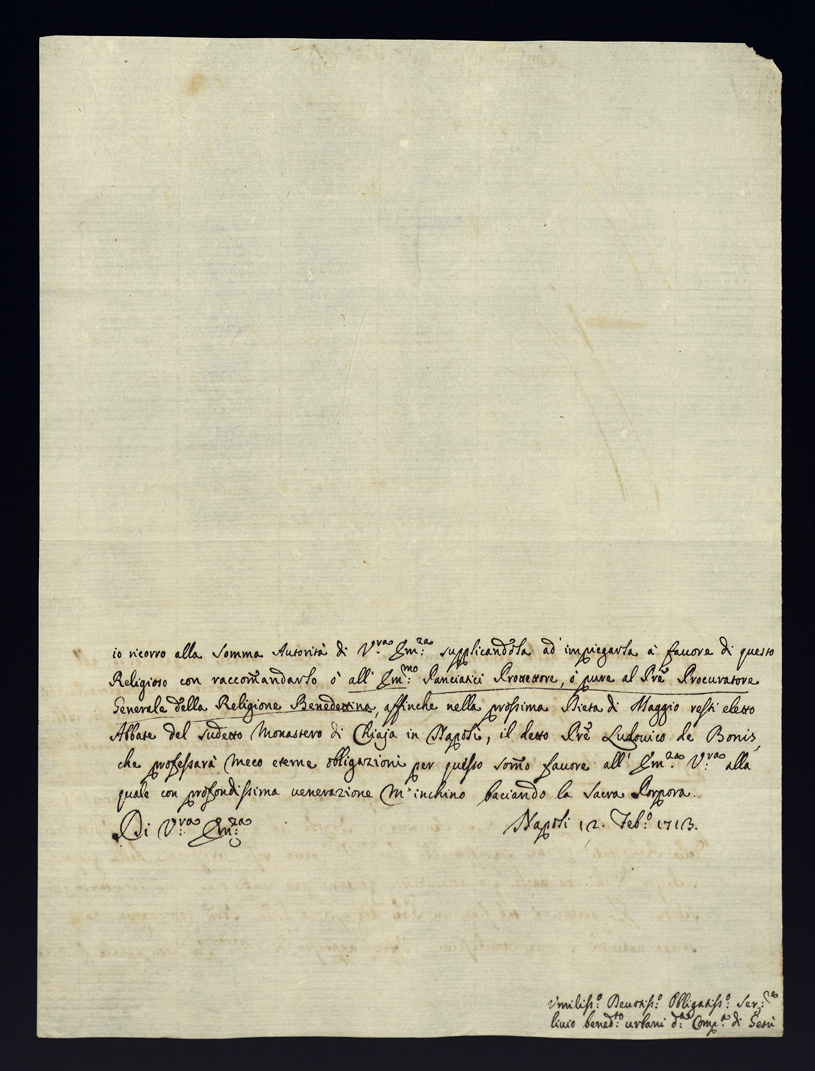 io ricorro alla Somma Autorità di V.ra Em.za supplicandola ad' impiegarla a favore di questo
Religioso con raccom̃andarlo ò all' Em.mo Panciatici Protettore, ò pure al Prẽ Procuratore
Generale della Religione Benedettina, affinche nella prossima Dieta di Maggio resti eletto
Abbate del sudetto Monastero di Chiaja in Napoli, il detto Prẽ Ludovico de Bonis,
che professarà meco eterne obligazioni per questo som̃o favore all' Em.za V.ra alla
quale con profondissima venerazione m'inchino baciando la Sacra Porpora.
Di V.ra Em.za
Napoli 12. Feb.o 1713.
Vmiliss.o Devotiss.o Obligatiss.o Ser.re
livio bened.to urbani d.a Comp.a di Gesù